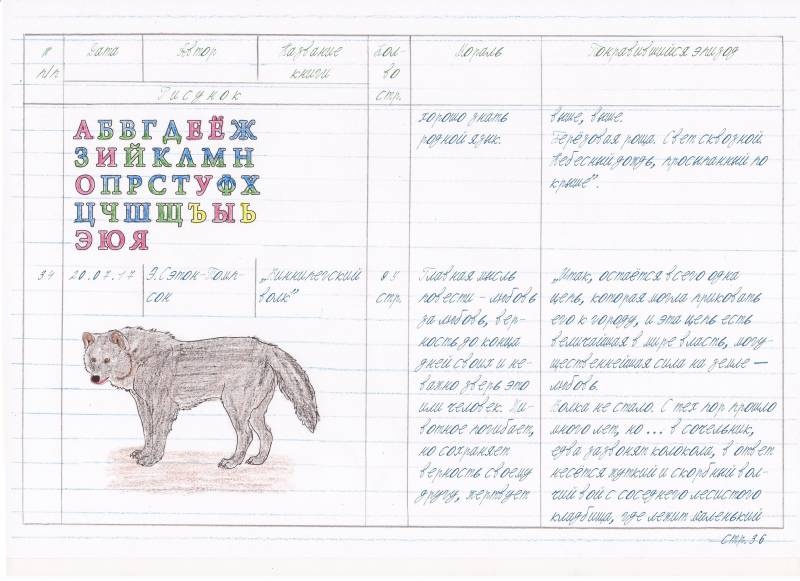 № п/п
Дата
Автор
Название
книги
Кол-
во
стр.
Мораль
Понравившийся эпизод
Рисунок
АБВГДЕЁЖ
ЗИЙКЛМН
ОПРСТУФХ
ЦЧШЩЪЫЬ
ЭЮЯ
хорошо знать
родной язык.
выше, выше.
Берёзовая роща. Свет сквозной.
Небесный дождь, просыпанный по
крыше".
34
20.07.17
Э.Сэтон-Томп-
сон
„Виннипегский
волк"
стр.
Главная мысль
повести – любовь
за любовь, вер-
ность до конца
дней своих и не-
важно зверь это
или человек. Жи-
вотное погибает,
но сохраняет
верность своему
другу, жертвует
„Итак, остаётся всего одна
цепь, которая могла приковать
его к городу, и эта цепь есть
величайшая в мире власть, могу-
щественнейшая сила на земле —
любовь.
Волка не стало. С тех пор прошло
много лет, но ... в сочельник,
едва зазвонят колокола, в ответ
несётся жуткий и скорбный вол-
чий вой с соседнего лесистого
кладбища, где лежит маленький
стр. 36